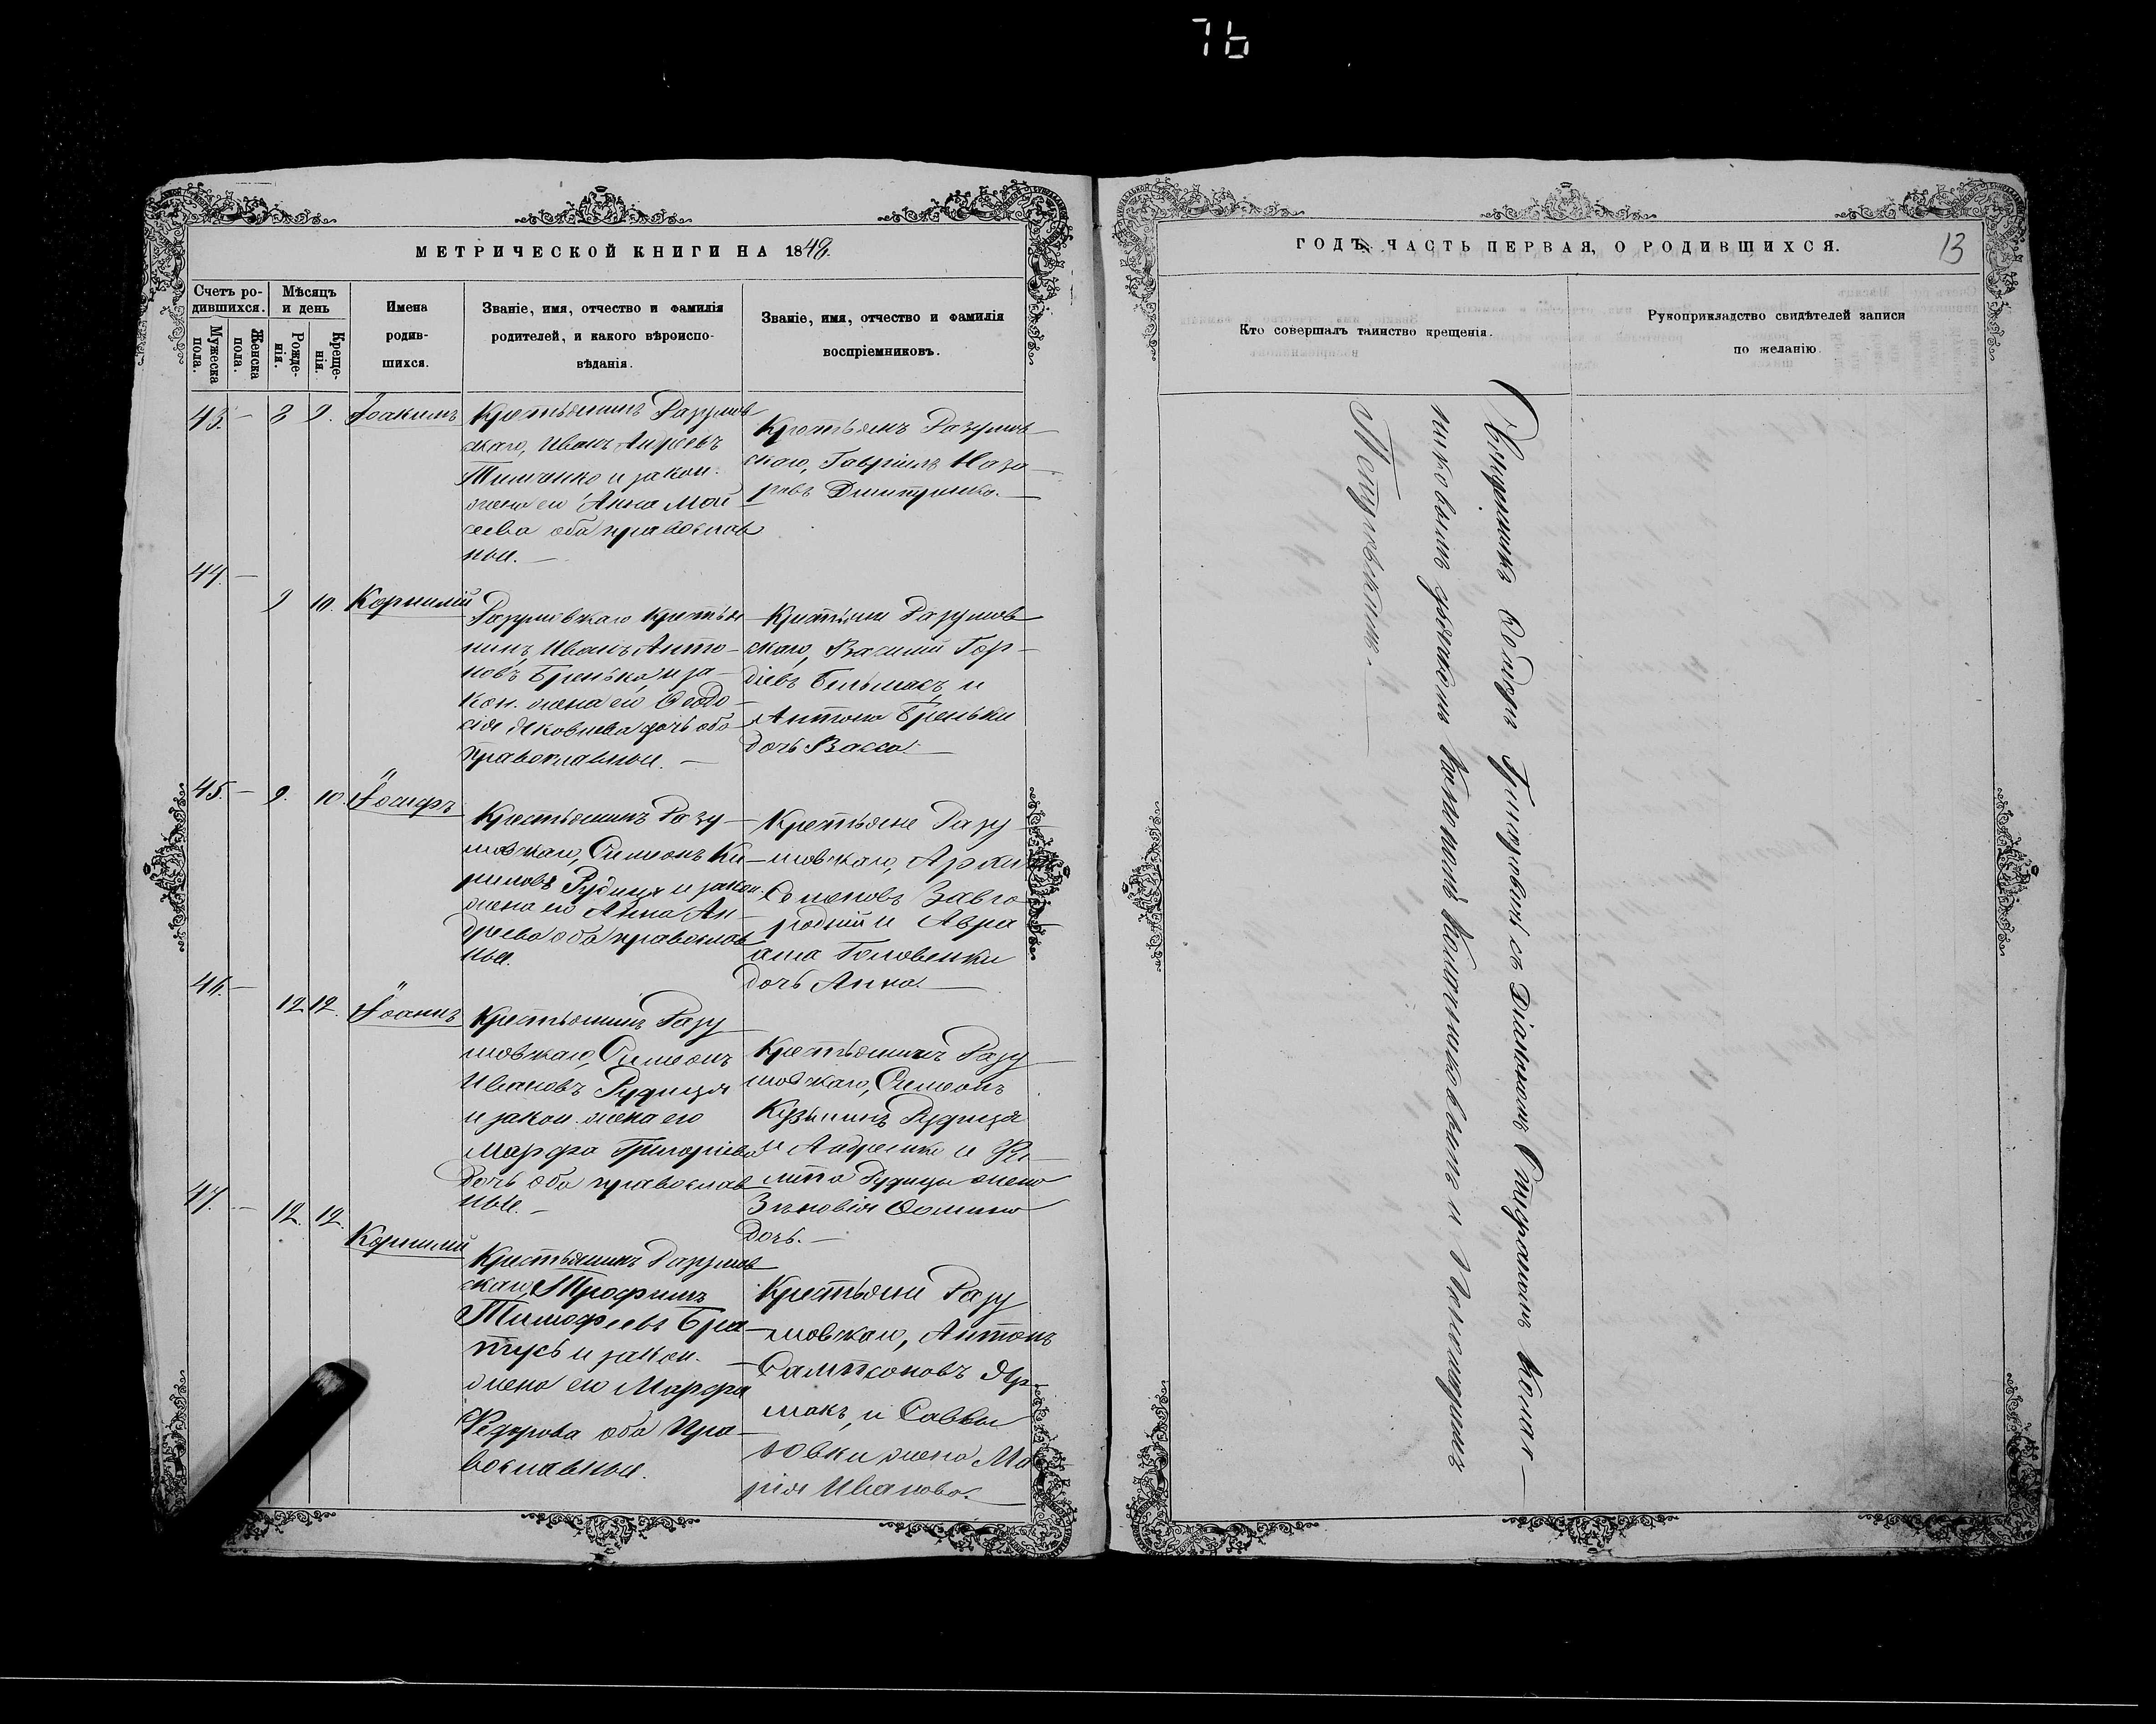 76
МЕТРИЧЕСКОЙ КНИГИ НА 1848.
Счетъ ро-
дившихся.
Мужеска
пола.
Женска
пола.
Мѣсяцъ
и день
Рожде-
нія.
Креще-
нія.
Имена
родив-
шихся.
Званіе, имя, отчество и фамилія
родителей, и какого вѣроиспо-
вѣданія.
Званіе, имя, отчество и фамилія
воспріемниковъ.
43. — 8 9. Іоакимъ
Крестьянинъ Разумов
скаго, Иванъ Андреевъ
Тимченко и закон.
жена его Анна Мои
сеева оба православ
ные. —
Крестьянъ Разумов
скаго, Гавріилъ Наза
ровъ Дмитренко. —
44. — 9 10. Корнилій
Разумовскаго крестья
нинъ Иванъ Анто-
новъ Бренько, и за-
кон. жена его Феодо-
сія Яковлева дочь оба
православные. —
Крестьяне Разумов
скаго, Василій Гор-
діевъ Бельмасъ и
Антона Бреньки
дочь Васса. —
45. — 9. 10. Іосифъ
Крестьянинъ Разу-
мовскаго, Симеонъ Ки-
риловъ Рудица и закон.
жена его Анна Ан-
дреева оба православ
ные.
Крестьяне Разу
мовскаго,
Семеновъ Завго
родній и Авра
ама Головенки
дочь Анна. —
46. — 12 12. Іоаннъ
Крестьянинъ Разу
мовскаго, Симеонъ
Ивановъ Рудица
и закон. жена его
Марфа Григоріева
дочь оба православ
ные. —
Крестьянинъ Разу
мовскаго, Симеонъ
Кузьминъ Рудица
и
Рудицы жена
Зѣновія Фомина
дочь. —
47. — 12. 12. Корнилій
Крестьянинъ Разумов
скаго, Трофимъ
Тимофеевъ Бра-
тусь и закон.
жена его Марфа
Федорова оба Пра-
вославные.
Крестьяне Разу
мовскаго, Антонъ
Сампсоновъ Яр-
макъ, и Саввы
Вовки жена Ма
рія Иванова. —
ГОДЪ. ЧАСТЬ ПЕРВАЯ, О РОДИВШИХСЯ.
13
Кто совершалъ таинство крещенія.
Рукоприкладство свидѣтелей записи
по желанію.
Священникъ Григоровичъ съ Діакономъ
и Пономаремъ